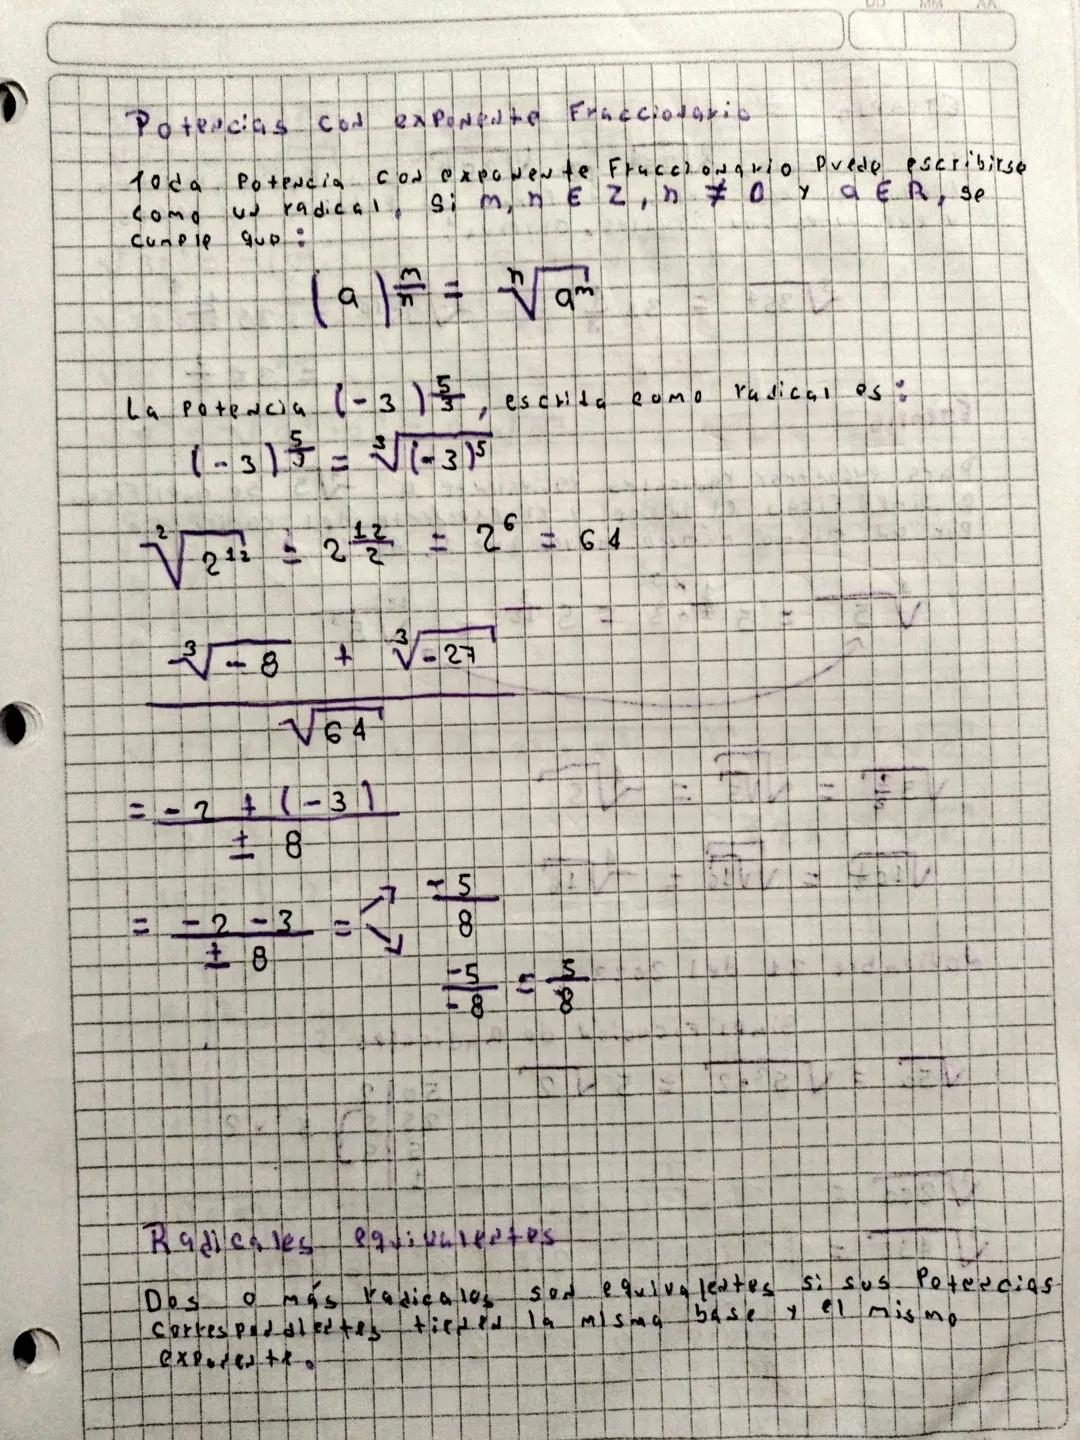 DD MM AA
Potencias con exponente Fraccionario
Toda Potencia con exponente Fraccionario Puede escribirse
como un radical, Si m, n ∈ Z, n ≠ 0 y a ∈ R, se
cumple que:
(a)^(m/n) = ⁿ√(a^m)
La Potencia (-3)^(5/3), escrita como radical es:
(-3)^(5/3) = ³√((-3)^5)
²√(2^12) = 2^(12/2) = 2^6 = 64
³√-8 + ³√-27
√64
= -2 + (-3)
± 8
= -2 -3 / ± 8 = -5/8
-5/-8 = 5/8
Radicales equivalentes
Dos o más radicales son equivalentes si sus Potencias
correspondientes tienen la misma base y el mismo
exponente.